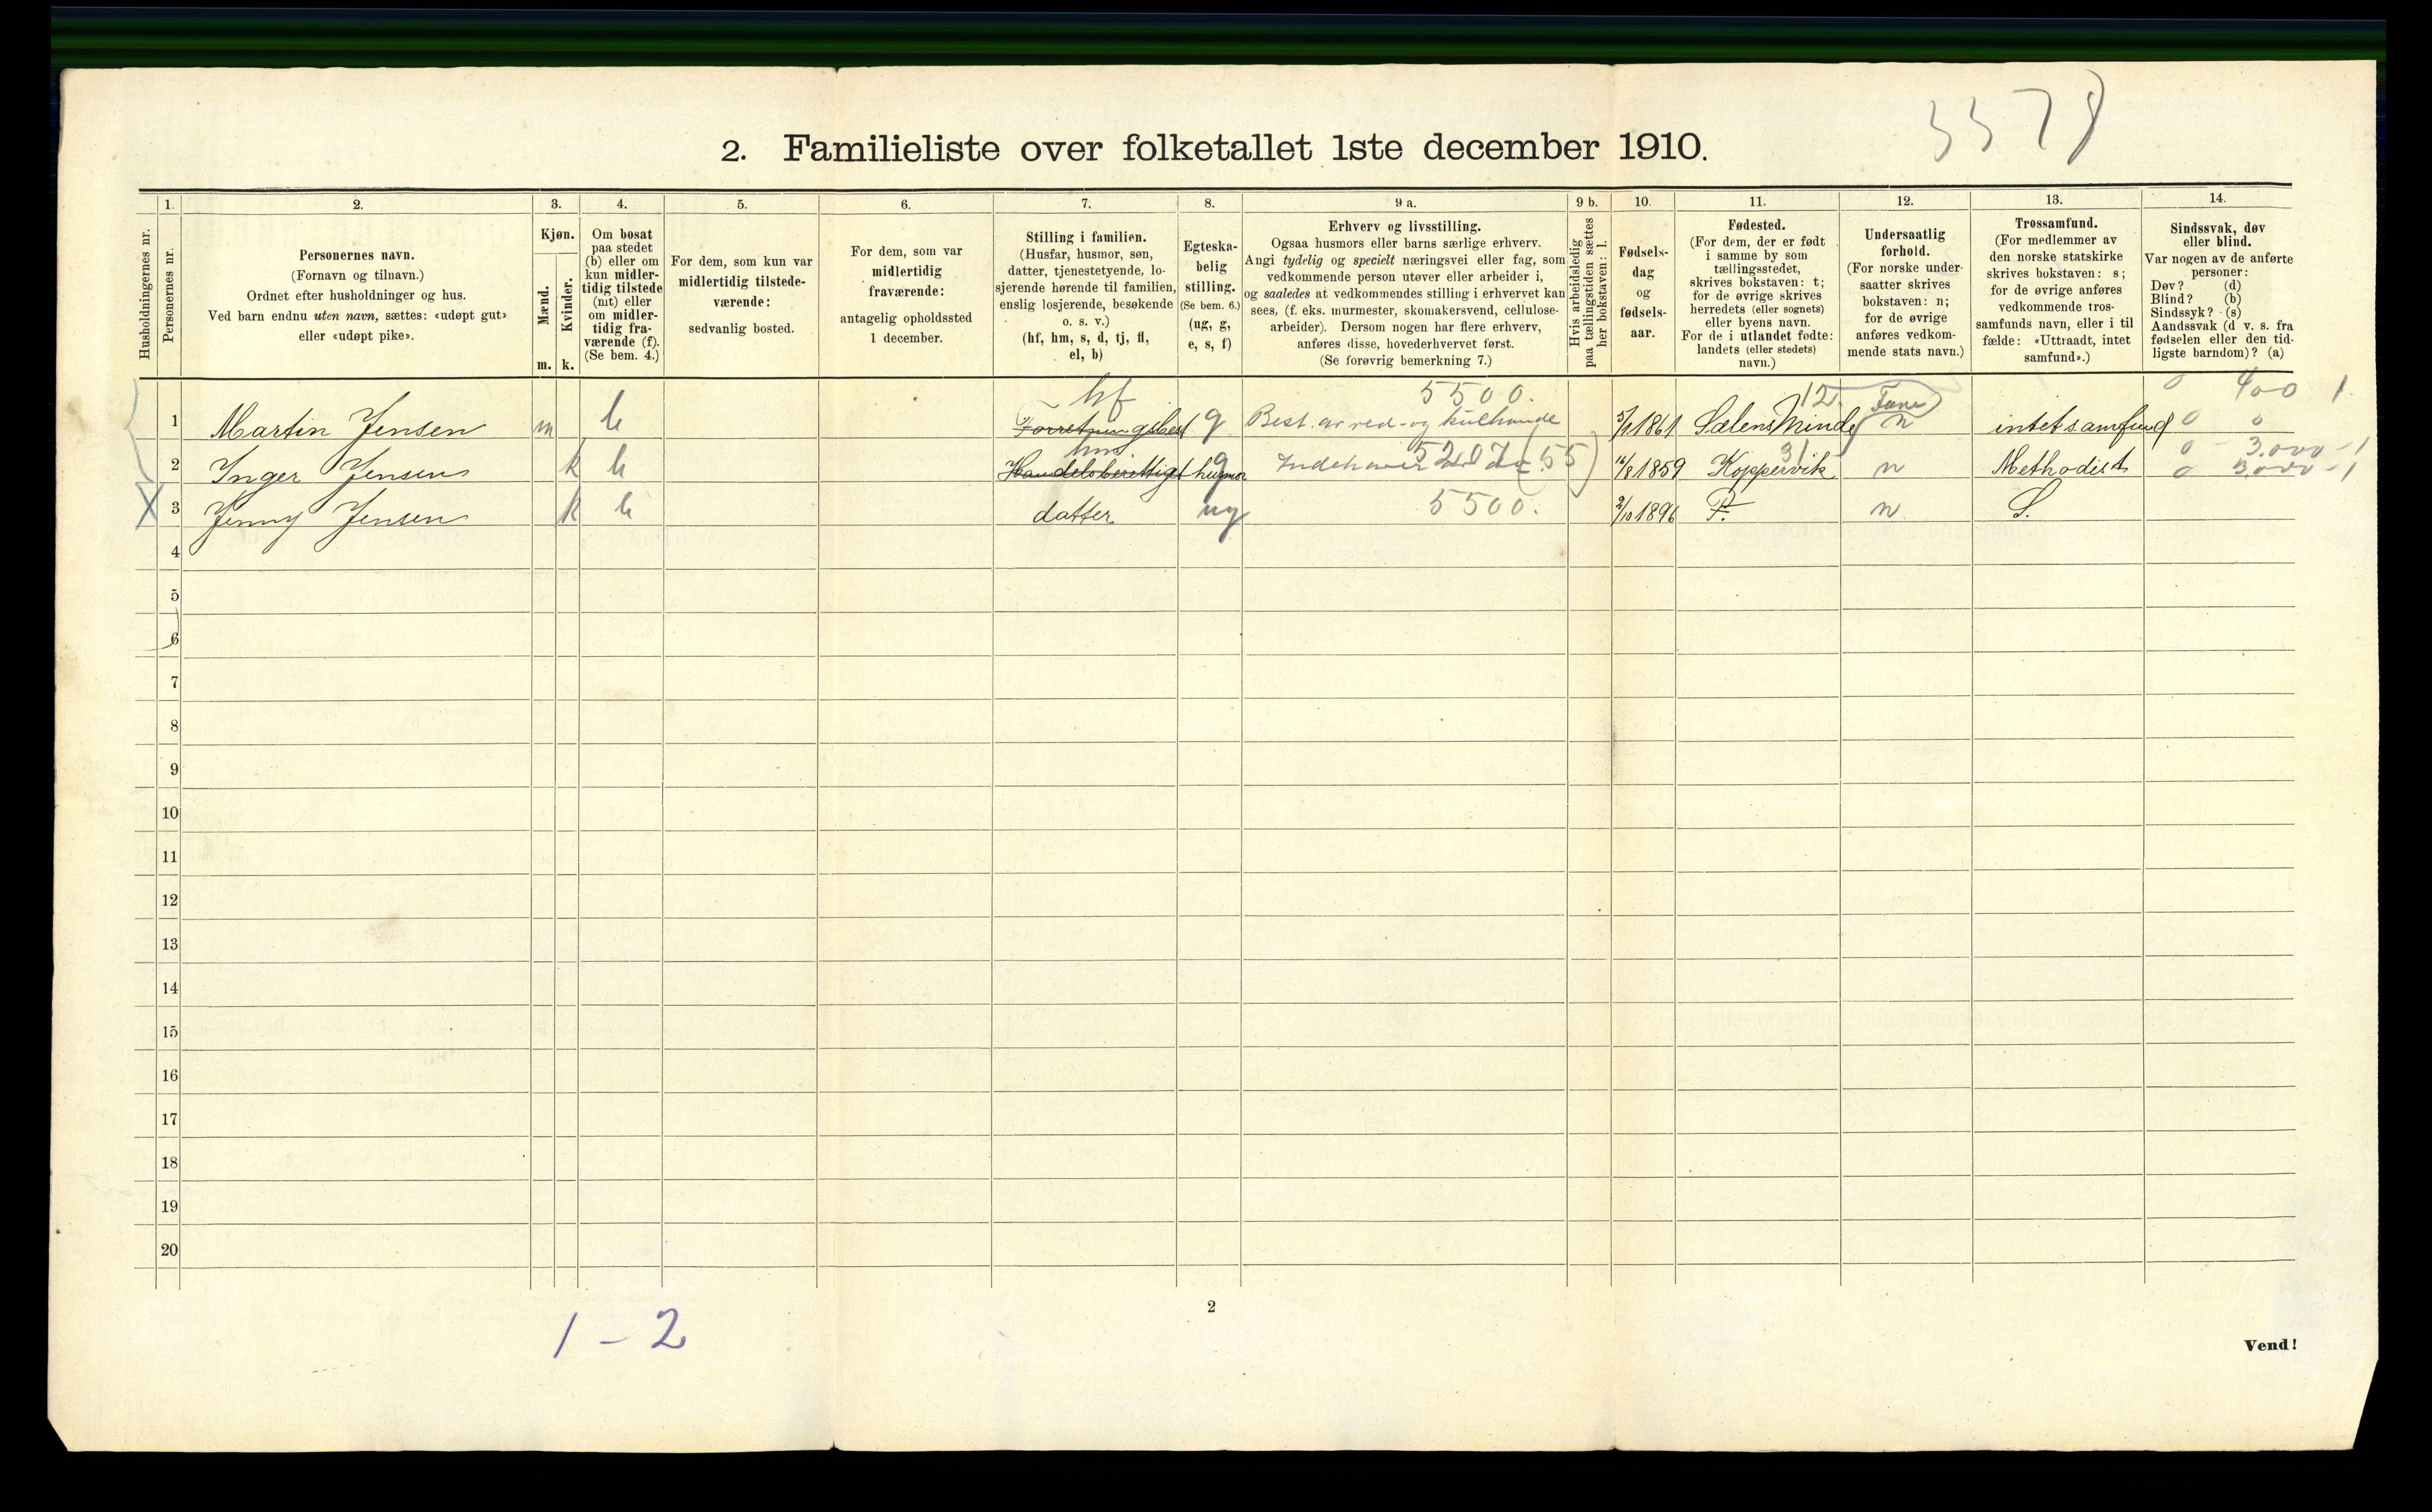 3378
2. Familieliste over folketallet 1ste december 1910.
1. 2. 3. 4. 5. 6. 7. 8. 9 a. 9 b. 10. 11. 12. 13. 14.
Husholdningernes nr.
Personernes nr.
Personernes navn.
(Fornavn og tilnavn.)
Ordnet efter husholdninger og hus.
Ved barn endnu uten navn, sættes: «udøpt gut»
eller «udøpt pike».
Kjøn.
Mænd.
Kvinder.
m. k.
Om bosat
paa stedet
(b) eller om
kun midler-
tidig tilstede
(mt) eller
om midler-
tidig fra-
værende (f).
(Se bem. 4.)
For dem, som kun var
midlertidig tilstede-
værende:
sedvanlig bosted.
For dem, som var
midlertidig
fraværende:
antagelig opholdssted
1 december.
Stilling i familien.
(Husfar, husmor, søn,
datter, tjenestetyende, lo-
sjerende hørende til familien,
enslig losjerende, besøkende
o. s. v.)
(hf, hm, s, d, tj, fl,
el, b)
Egteska-
belig
stilling.
(Se bem. 6.)
(ug, g,
e, s, f)
Erhverv og livsstilling.
Ogsaa husmors eller barns særlige erhverv.
Angi tydelig og specielt næringsvei eller fag, som
vedkommende person utøver eller arbeider i,
og saaledes at vedkommendes stilling i erhvervet kan
sees, (f. eks. murmester, skomakersvend, cellulose-
arbeider). Dersom nogen har flere erhverv,
anføres disse, hovederhvervet først.
(Se forøvrig bemerkning 7.)
Hvis arbeidsledig
paa tællingstiden sættes
her bokstaven: l.
Fødsels-
dag
og
fødsels-
aar.
Fødested.
(For dem, der er født
i samme by som
tællingsstedet,
skrives bokstaven: t;
for de øvrige skrives
herredets (eller sognets)
eller byens navn.
For de i utlandet fødte:
landets (eller stedets)
navn.)
Undersaatlig
forhold.
(For norske under-
saatter skrives
bokstaven: n;
for de øvrige
anføres vedkom-
mende stats navn.)
Trossamfund.
(For medlemmer av
den norske statskirke
skrives bokstaven: s;
for de øvrige anføres
vedkommende tros-
samfunds navn, eller i til
fælde: «Uttraadt, intet
samfund».)
Sindssvak, døv
eller blind.
Var nogen av de anførte
personer:
Døv? (d)
Blind? (b)
Sindssyk? (s)
Aandssvak (d v. s. fra
fødselen eller den tid-
ligste barndom)? (a)
hf 5500. 12. Fane 0 400 1
1 Martin Jensen m b Forretningsbest g Best. av ved- og kulhande 5/1 1861 Sælens Minde n intet samfund 0 0
hm 5207 (55) 31 0 3.000 - 1
2 Inger Jensen k b Handelsberettiget husmor g Indehaver 16/8 1859 Koppervik n Methodist 0 3.000 - 1
X 3 Jenny Jensen k b datter ug 5500. 2/10 1896 T. n S.
4
5
6
7
8
9
10
11
12
13
14
15
16
17
18
19
20
2
1 - 2
Vend!